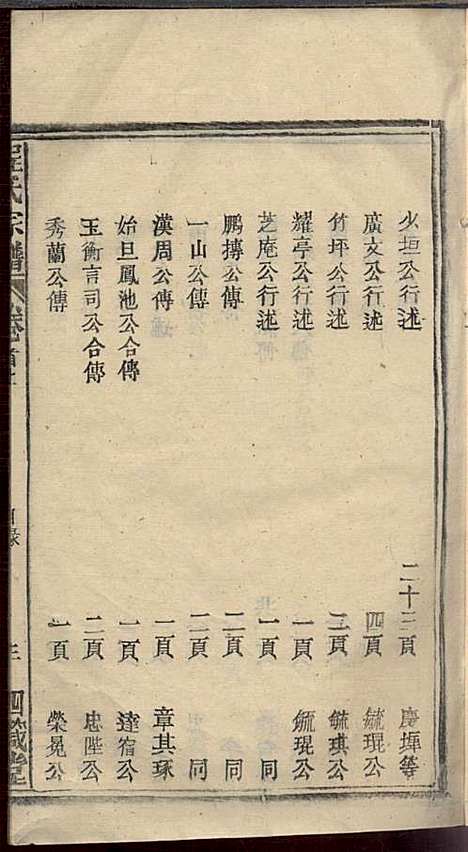 火垣公行述　二十三頁　慶墀等
廣文公行述　四頁　毓琨公
竹坪公行述　二頁　毓琪公
耀亭公行述　一頁　毓琨公
芝庵公行述　一頁　同
鵬摶公傳　二頁　同
一山公傳　二頁　同
漢周公傳　一頁　章其琢
始旦鳳池公合傳　一頁　達宿公
玉衡言司公合傳　二頁　忠陛公
秀蘭公傳　一頁　榮冕公
氏宗譜　卷首上　目錄　三